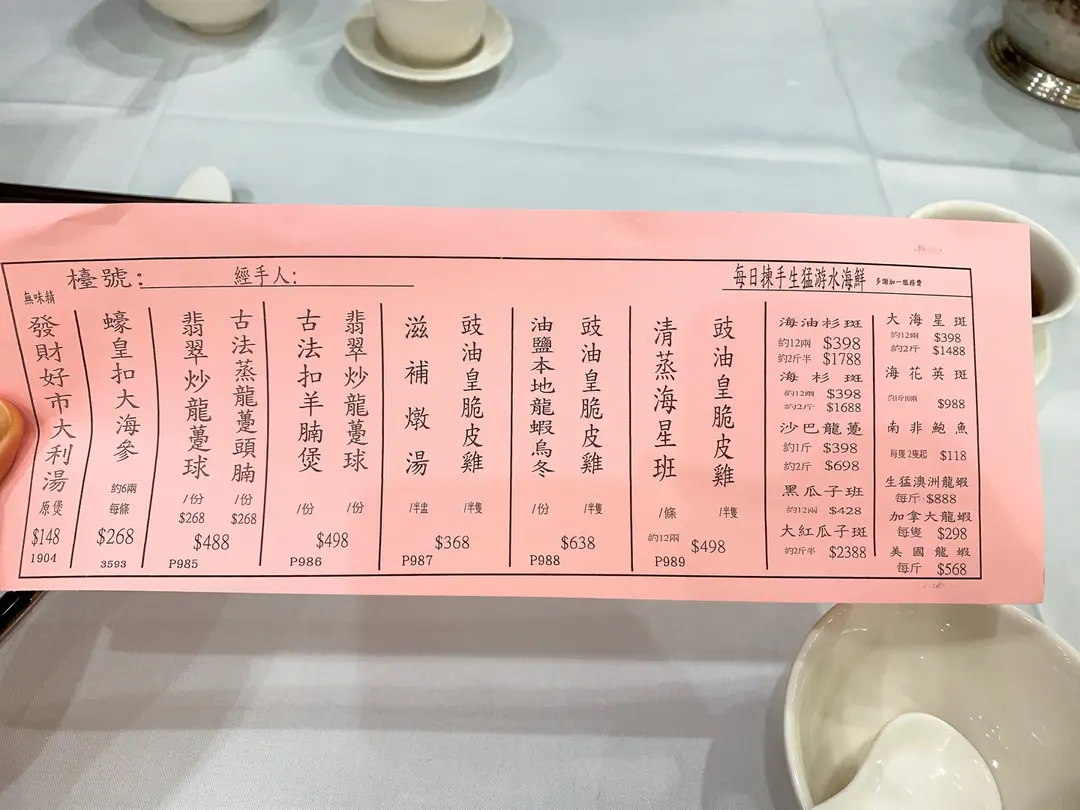 檯號：
經手人：
每日揀手生猛游水海鮮
多謝加一服務費
無味精
發財好市大利湯
原煲
$148
1904
蠔皇扣大海參
約6兩
每條
$268
3593
翡翠炒龍躉球
/份
$268
古法蒸龍躉頭腩
/份
$268
$488
P985
古法扣羊腩煲
/份
翡翠炒龍躉球
/份
$498
P986
滋補燉湯
/半盅
豉油皇脆皮雞
/半隻
$368
P987
油鹽本地龍蝦烏冬
/份
豉油皇脆皮雞
/半隻
$638
P988
清蒸海星班
/條
約12兩
豉油皇脆皮雞
/半隻
$498
P989
海油杉斑
約12兩 $398
約2斤半 $1788
海杉斑
約12兩 $398
約2斤 $1688
沙巴龍躉
約1斤 $398
約2斤 $698
黑瓜子班
約12兩 $428
大紅瓜子斑
約2斤半 $2388
大海星斑
約12兩 $398
約2斤 $1488
海花英斑
$988
南非鮑魚
每隻 2隻起 $118
生猛澳洲龍蝦
每斤 $888
加拿大龍蝦
每隻 $298
美國龍蝦
每斤 $568